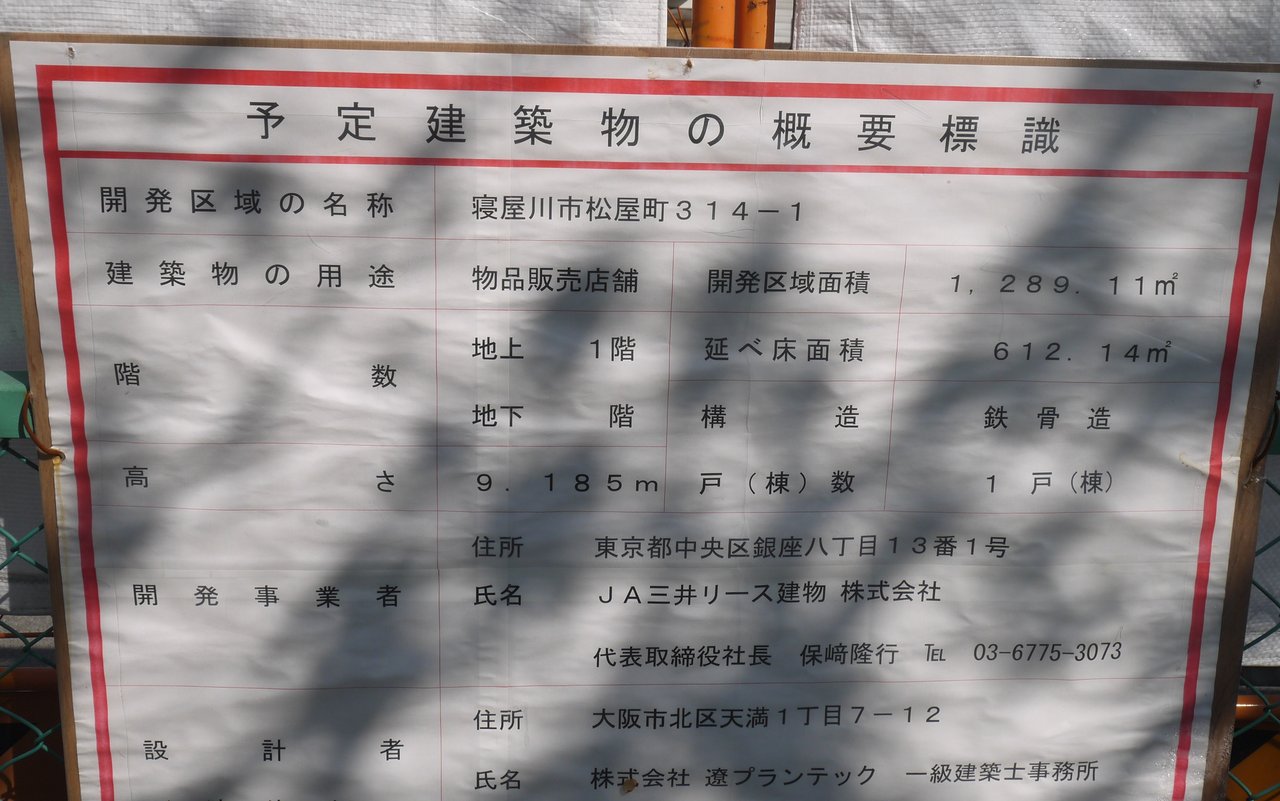 予定建築物の概要標識
開発区域の名称 寝屋川市松屋町314-1
建築物の用途 物品販売店舗 開発区域面積 1,289.11㎡
階数 地上 1階 延べ床面積 612.14㎡
地下 階 構造 鉄骨造
高さ 9.185m 戸(棟)数 1 戸(棟)
住所 東京都中央区銀座八丁目13番1号
開発事業者 氏名 JA三井リース建物 株式会社
代表取締役社長 保﨑隆行 ℡ 03-6775-3073
住所 大阪市北区天満1丁目7-12
設計者
氏名 株式会社 遼プランテック 一級建築士事務所